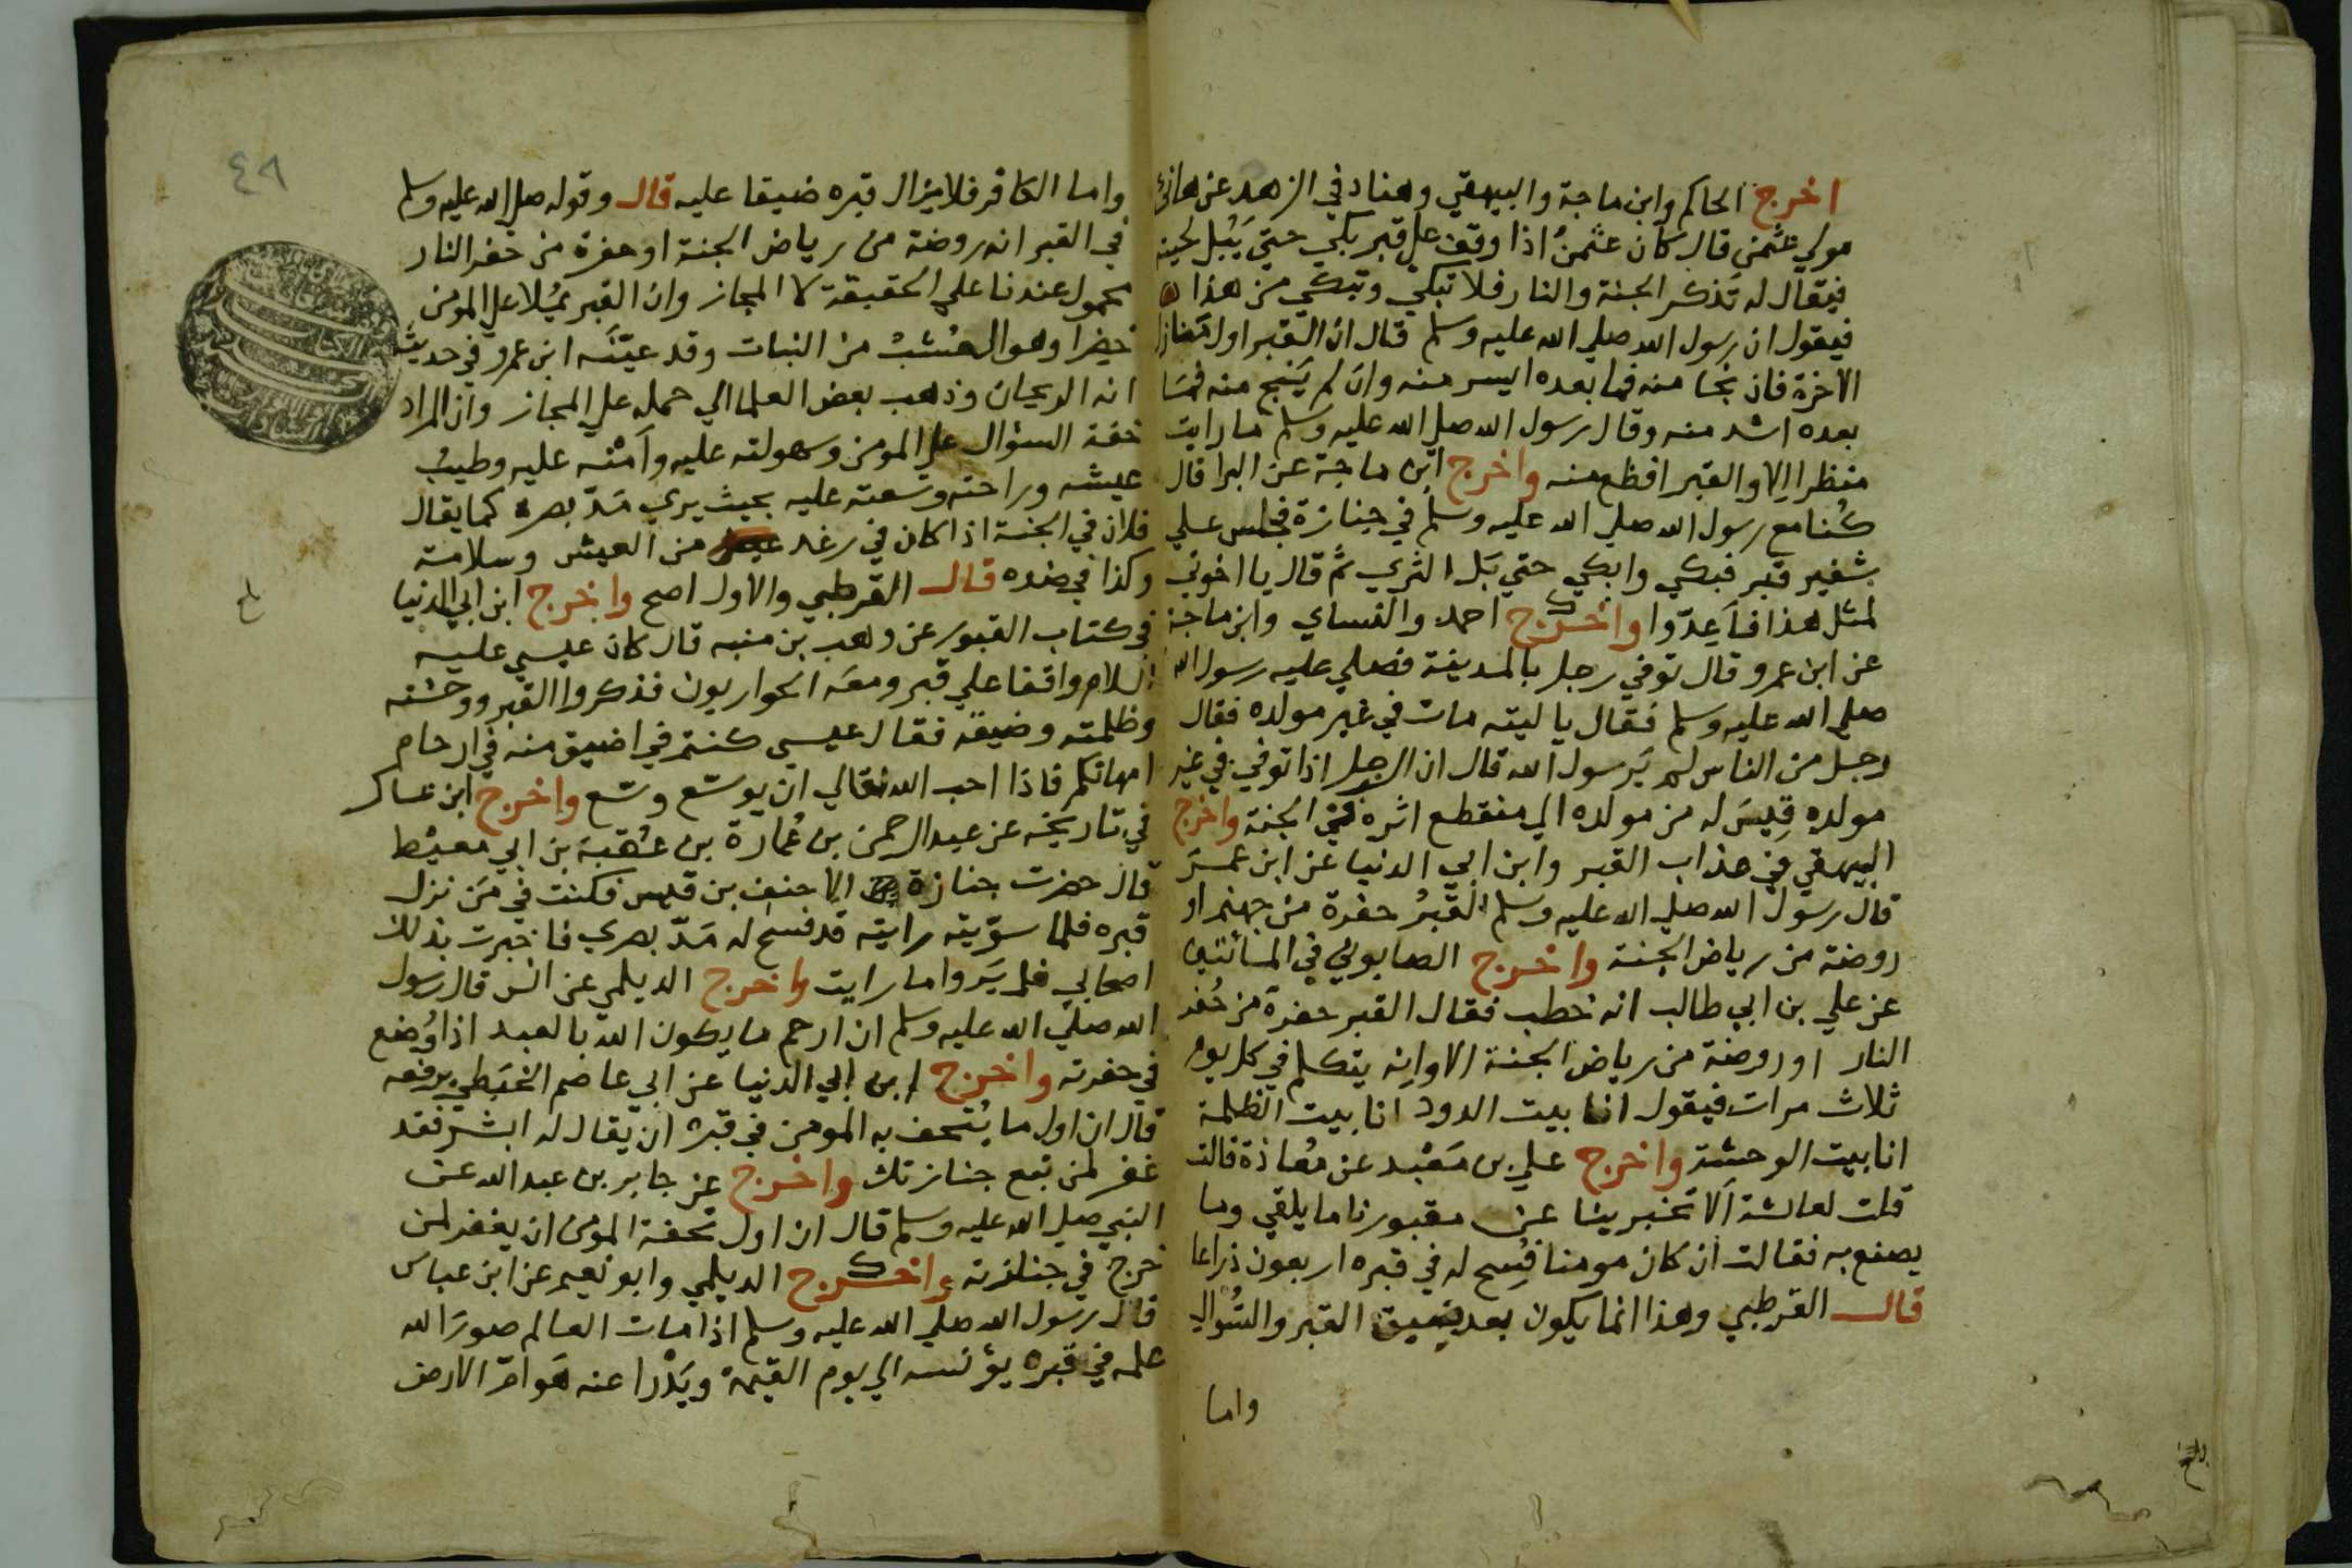 اخرج الحاكم وابن ماجة والبيهقي وهناد في الزهد عن هانئ
مولي عثمن قال كان عثمنُ اذا وقف علي قبر بكي حتي يَبُل لحيته
فيقال له تذكر الجنة والنار فلا تبكي وتبكي من هذا
فيقول ان رسول الله صلي الله عليه وسلم قال ان القبر اول منازل
الاخرة فان نجا منه فما بعده ايسر منه وان لم يَنج منه فما
بعده اشد منه وقال رسول الله صلي الله عليه وسلم ما رايت
منظرا الا والقبر افظع منه واخرج ابن ماجة عن البرا قال
كُنا مع رسول الله صلي الله عليه وسلم في جنازة فجلس علي
شفير قبر فبكي وابكي حتي بَل الثري ثم قال يا اخوتي
لمثل هذا فاَعِدّوا واخرج احمد والنساي وابن ماجة
عن ابن عمرو قال توفي رجل بالمدينة فصلي عليه رسول الله
صلي الله عليه وسلم فقال يا ليته مات في غير مولده فقال
رجل من الناس لم يَرسول الله قال ان الرجل اذا توفي في غير
مولده قِيسَ له من مولده الي منقطع اثره في الجنة واخرج
البيهقي في عذاب القبر وابن ابي الدنيا عن ابن عمرَ
قال رسول الله صلي الله عليه وسلم القَبرُ حفرة من جهنم او
روضة من رياض الجنة واخرج الصابوني في المائتين
عن علي بن ابي طالب انه خطب فقال القبر حفرة من حُفر
النار او روضة من رياض الجنة الا وانه يتكلم في كل يوم
ثلاث مرات فيقول انا بيت الدود انا بيت الظلمة
انا بيت الوحشة واخرج علي بن مَعْبد عن مُعاذة قالت
قلت لعائشة اَلا تخبرينا عن مقبورنا ما يلقي وما
يصنع به فقالت ان كان مومنا فُسِح له في قبره اربعون ذراعا
قال القرطبي وهذا انما يكون بعد ضيق القبر والسُوال
واما
٤٨
واما الكافر فلا يزال قبره ضيقا عليه قال وقوله صلي الله عليه وسلم
في القبر انه روضة من رياض الجنة او حفرة من حُفر النار
محمول عندنا علي الحقيقة لا المجاز وان القبر يُملا علي المومن
خضِرا وهو العُشبُ من النبات وقد عيّنَه ابن عمرو في حديث
انه الريحان وذهب بعض العلما الي حمله علي المجاز وان المراد
خفة السؤال علي المومن وسهولته عليه وآمْنه عليه وطيبُ
عيشه وراحته وسعته عليه بحيث يري مَدّ بصره كما يقال
فلان في الجنة اذا كان في رغد من العيش وسلامة
وكذا في ضده قال القرطبي والاول اصح واخرج ابن ابي الدنيا
في كتاب القبور عن وهب بن منبه قال كان عيسي عليه
السلام واقفا علي قبر ومعَه الحواريون فذكروا القبر ووحشته
وظلمته وضيقه فقال عيسي كنتم في اضيق منه في ارحام
امهاتكم فاذا احب الله تعالي ان يوسّع وسّع واخرج ابن عساكر
في تاريخه عن عبد الرحمن بن عُمارة بن عُقبة بن ابي مُعيْط
قال حضرت جنازة الاحنف بن قيس فكنت في مَن نزل
قبره فلما سوّيته رايته قد فسح له مَدّ بصري فاخبرت بذلك
اصحابي فلم يَروا ما رايت واخرج الديلمي عن انس قال رسول
الله صلي الله عليه وسلم ان ارحم ما يكون الله بالعبد اذا وُضع
في حفرته واخرج ابن ابي الدنيا عن ابي عاصم الحَبَطي يرفعه
قال ان اول ما يُتحف به المومن في قبره ان يقال له ابشر فقد
غفر لمن تبع جنازتك واخرج عن جابر بن عبد الله عن
النبي صلي الله عليه وسلم قال ان اول تحفة المومن ان يغفر لمن
خرج في جنازته واخرج الديلمي وابو نُعيم عن ابن عباس
قال رسول الله صلي الله عليه وسلم اذا مات العالم صورَ الله
علمه في قبره يؤنسه الي يوم القيمة ويَدْرا عنه هَوامّ الارض